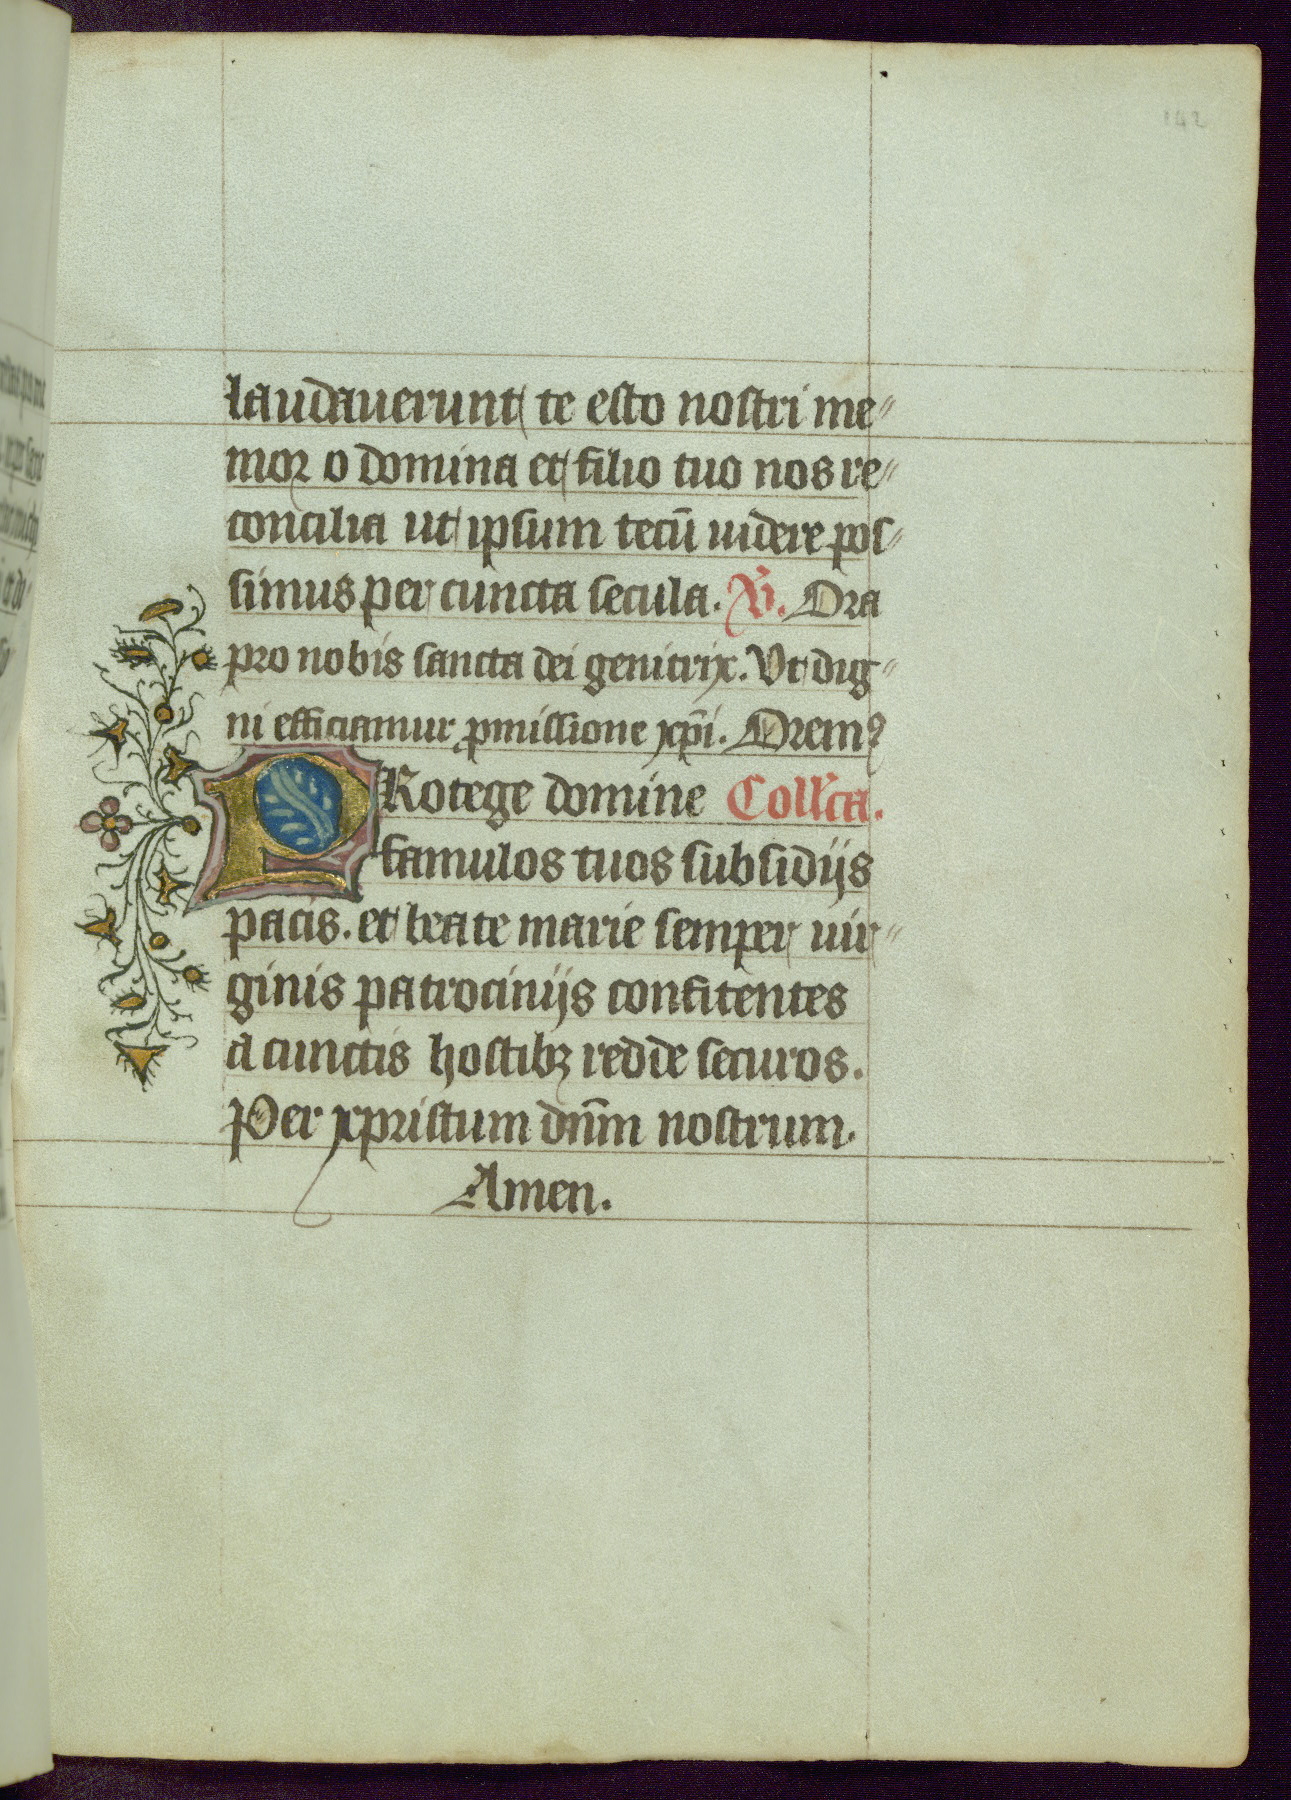 142
laudauerunt te esto nostri me-
mor o domina et filio tuo nos re-
concilia ut ipsum tecū uidere pos-
simus per cuncta secula. V̄. Ora
pro nobis sancta dei genitrix. Vt dig-
ni efficiamur ꝓmissione xp̄i. Orem⁹
PRotege domine Coll'cta.
famulos tuos subsidijs
pacis. et beate marie semper uir-
ginis patrocinijs confitentes
a cunctis hostibꝫ redde securos.
Per xpristum dn̄m nostrum.
Amen.